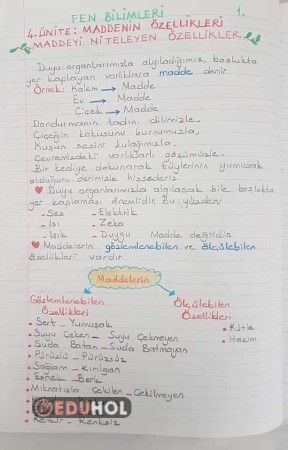 FEN BİLİMLERİ
1.
4.ÜNİTE: MADDENİN ÖZELLİKLERİ
MADDEYİ NİTELEYEN ÖZELLİKLER
Duyu organlarımızla algıladığımız, boşlukta
yer kaplayan varlıklara madde denir
Örnek: Kalem → Madde
Ev → Madde
Çiçek → Madde
Dondurmanın tadını dilimizle,
Çiçeğin kokusunu burnumuzla,
Kuşun sesini kulağımızla,
Çevremizdeki varlıkları gözümüzle,
Bir kediye dokunarak tüylerinin yumuşak
olduğunu derimizle hissederiz.
Duyu organlarımızla algılasak bile boşlukta
yer kaplaması önemlidir. Bu yüzden;
- Ses - Elektrik
- Isı - Zeka
- Işık - Duygu Madde değildir
Maddelerin gözlemlenebilen ve ölçülebilen
özellikleri vardır.
Maddelerin
Gözlemlenebilen Özellikleri
Ölçülebilen Özellikleri
Sert - Yumuşak
Kütle
Suyu Çeken - Suyu Çekmeyen
Hacim
Suda Batan - Suda Batmayan
Pürüzlü - Pürüzsüz
Sağlam - Kırılgan
Esnek - Berk
Mıknatısla Çekilen - Çekilmeyen
EDUHOL
Renkli - Renksiz